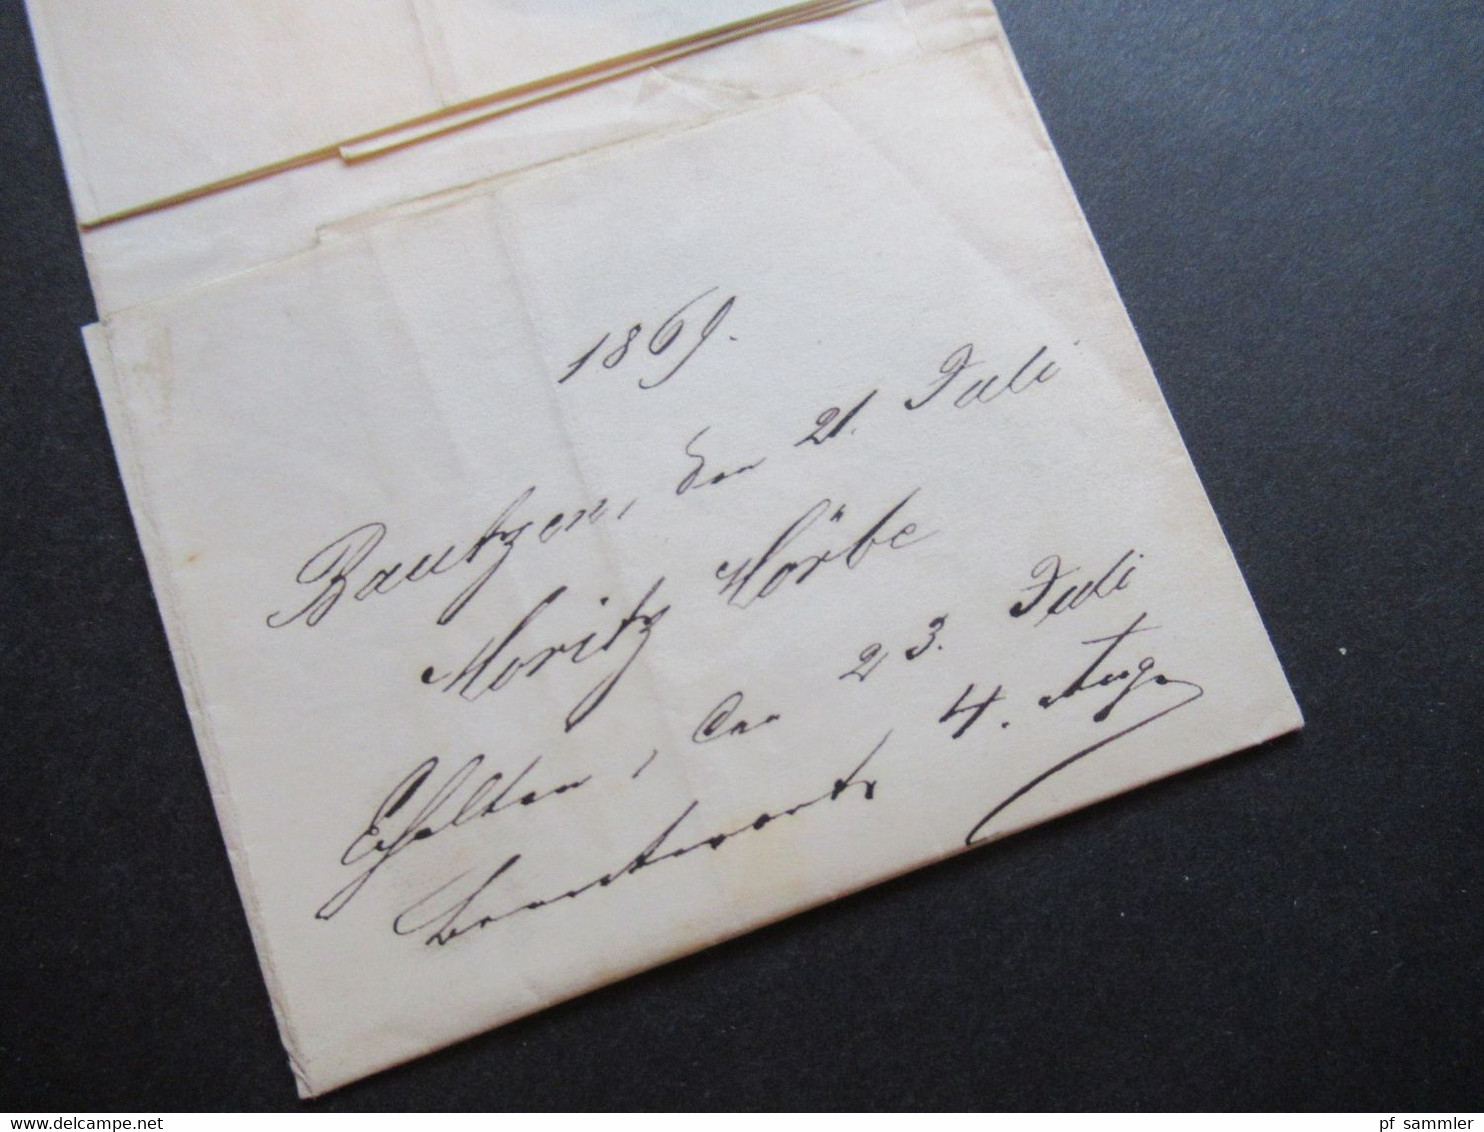 1869.
Bautzen, den 21. Juli
Moritz Hörbe
Erhalten, den 23. Juli
beantwortet 4. Aug.
delcampe.net
pf_sammler